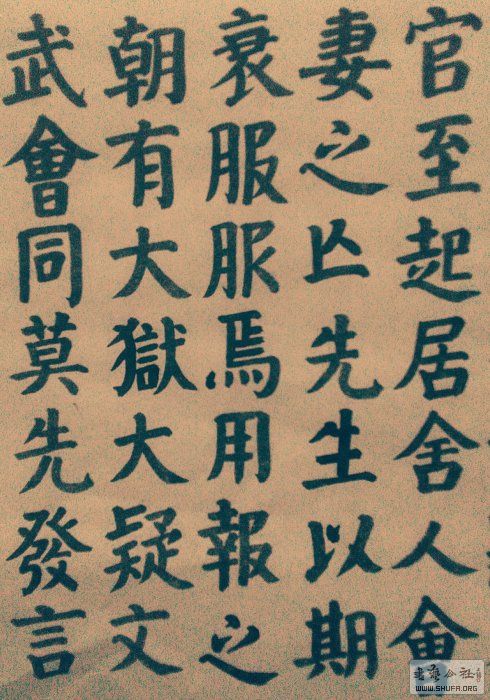 官至起居舍人會
妻之亡先生以期
衰服服焉用報之
朝有大獄大疑文
武會同莫先發言
書藝公社
WWW.SHUFA.ORG